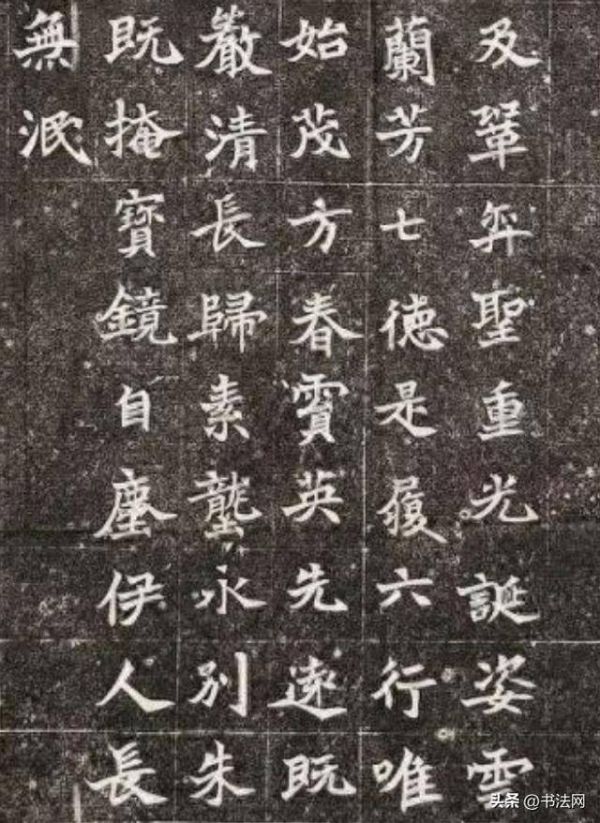 及鞏弈聖重光誕姿雲
蘭芳七徳是履六行唯
始茂方春霣英先遠既
嚴清長歸素壟永別朱
既掩寶鏡自塵伊人長
無泯
头条 @书法网